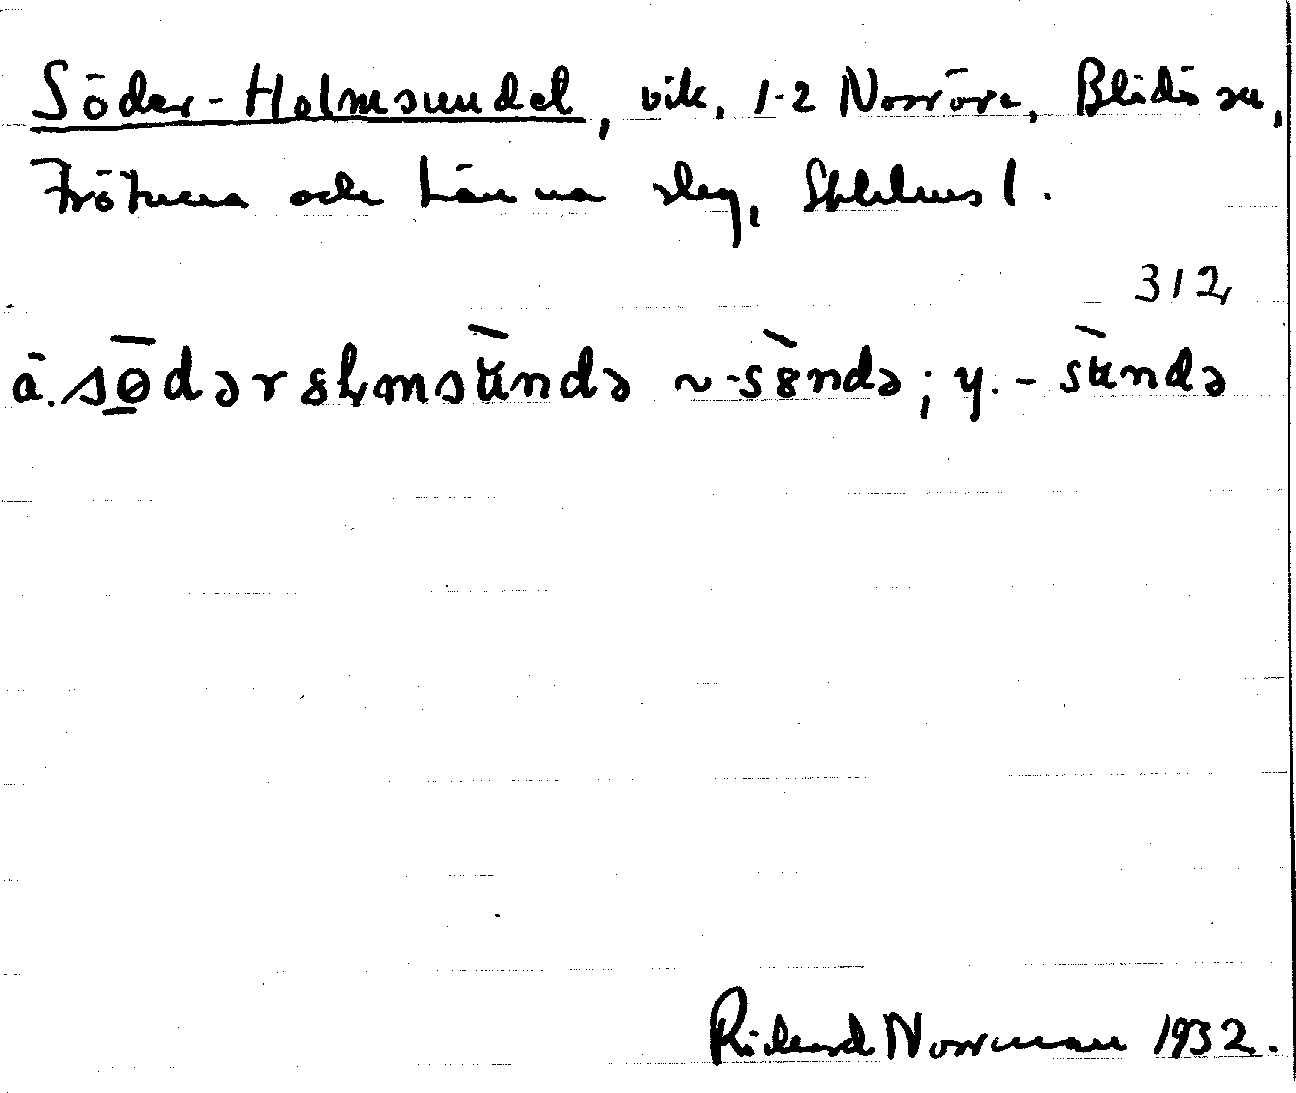 Söder-Holmsundet, vik, 1-2 Norröra, Blidö sn,
Frötuna och Länna slg, Sthlms l.
312
ä. sø̄dərȣłmsʉ̀ndə ~ -sȣ̀ndə; y. - sʉ̀ndə
Rickard Norrman 1932.